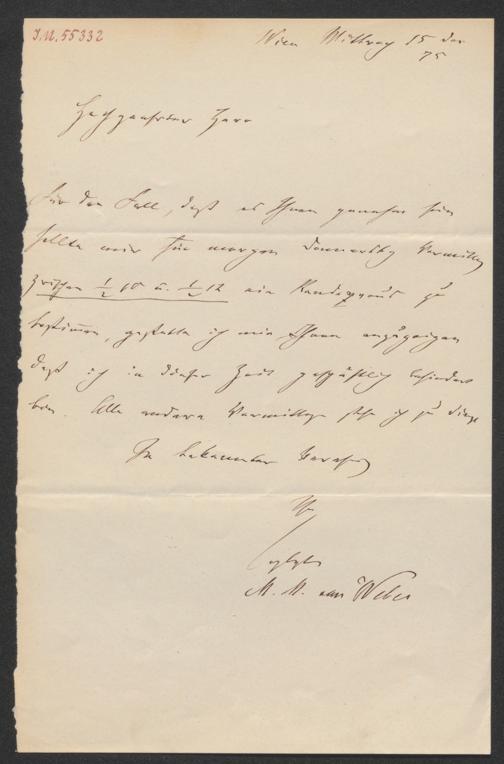 I.N. 55332
Wien Mittwog 15 Dec
75
Hochgeehrter Herr
Für den Fall, daß es Ihnen genehm sein
sollte mir für morgen Donnerstag Vormittag
zwischen ½ 10 u. ½ 12 ein Rendezvous zu
bestimmen, gestatte ich mir Ihnen anzuzeigen
daß ich in dieser Zeit geschäftlich behindert
bin. Alle andere Vormittage stehe ich zu Dienst
In bekannter Verehrung
Ihr
M. M. von Weber